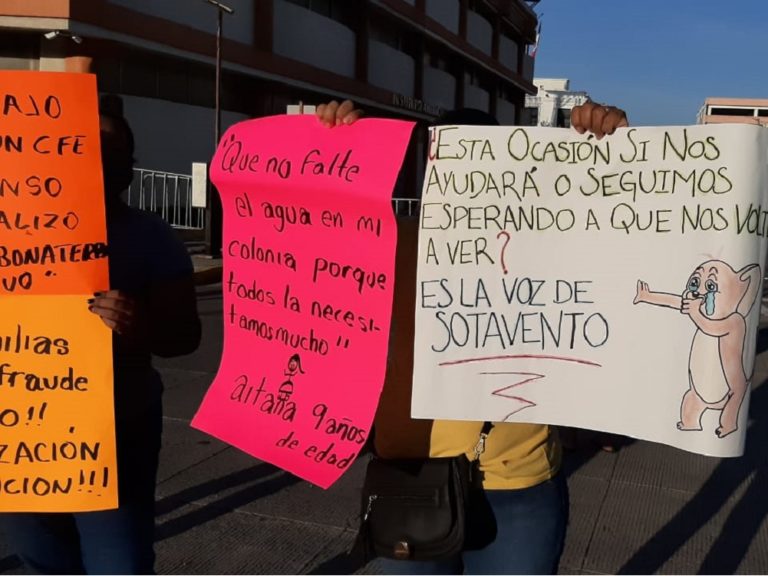 AJO
UN CFE
NSO
ALIZO
BONATERRA
VO"
ILIAS
FRAUDE
O!!
ZACIÓN
UCION!!!
"Que no falte
el agua en mi
colonia porque
todos la necesi-
tamos mucho!!
aitana 9 años
de edad
¿ESTA OCASIÓN SI NOS
AYUDARÁ O SEGUIMOS
ESPERANDO A QUE NOS VOLT
A VER?
ES LA VOZ DE
SOTAVENTO